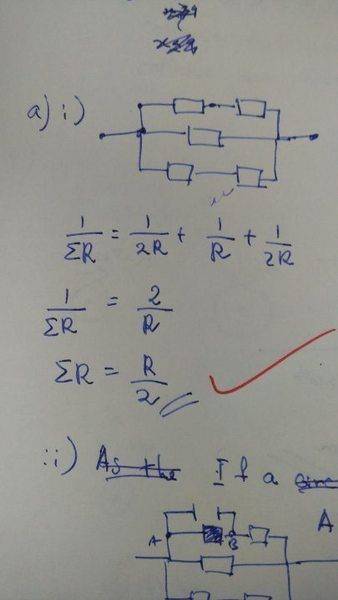 a) i)
1/ΣR = 1/2R + 1/R + 1/2R
1/ΣR = 2/R
ΣR = R/2
ii) As the If a
A
A B